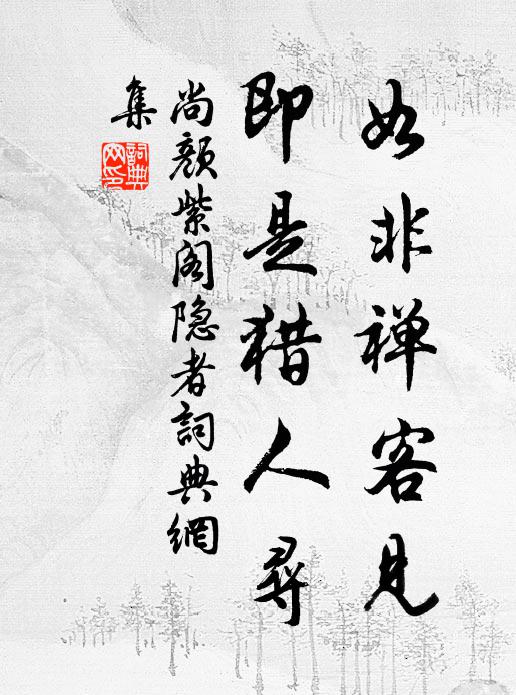 如非禅客见
即是猎人寻
尚颜紫阁隐者詞典網
集
詞典
网印